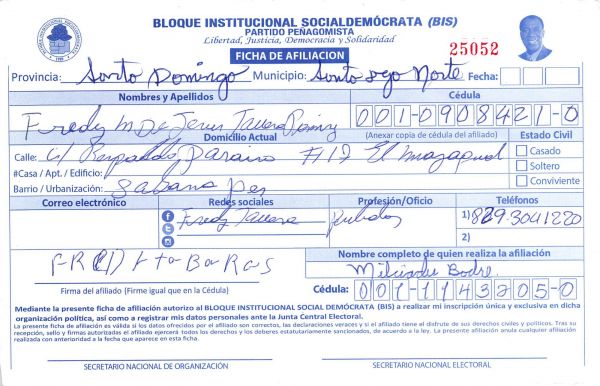 BLOQUE INSTITUCIONAL SOCIALDEMÓCRATA (BIS)
PARTIDO PEÑAGOMISTA
Libertad, Justicia, Democracia y Solidaridad
FICHA DE AFILIACION
25052
Provincia: Santo Domingo Municipio: Santo Norte Fecha:
Nombres y Apellidos Cédula
Fredy M De Jesus Tavera 001-0908421-0
Domicilio Actual (Anexar copia de cédula del afiliado) Estado Civil
Calle: c/ Respaldo Paraiso #17 El Casado
#Casa / Apt. / Edificio: Soltero
Barrio / Urbanización: Sabana Per Conviviente
Correo electrónico Redes sociales Profesión/Oficio Teléfonos
Fredy Tavera 1) 829.3041220
2)
Nombre completo de quien realiza la afiliación
Firma del afiliado (Firme igual que en la Cédula)
Cédula: 001-1143205-0
Mediante la presente ficha de afiliación autorizo al BLOQUE INSTITUCIONAL SOCIAL DEMÓCRATA (BIS) a realizar mi inscripción única y exclusiva en dicha
organización política, así como a registrar mis datos personales ante la Junta Central Electoral.
La presente ficha de afiliación es válida si los datos ofrecidos por el afiliado son correctos, las declaraciones veraces y si el afiliado tiene el disfrute de sus derechos civiles y políticos. Tras su
recepción, sello y firmas autorizadas el afiliado ejercerá todos los derechos y los deberes estatutariamente sancionados, de acuerdo a la ley. La presente afiliación anula cualquier afiliación
realizada con anterioridad a la fecha que aparece en esta ficha.
SECRETARIO NACIONAL DE ORGANIZACIÓN SECRETARIO NACIONAL ELECTORAL